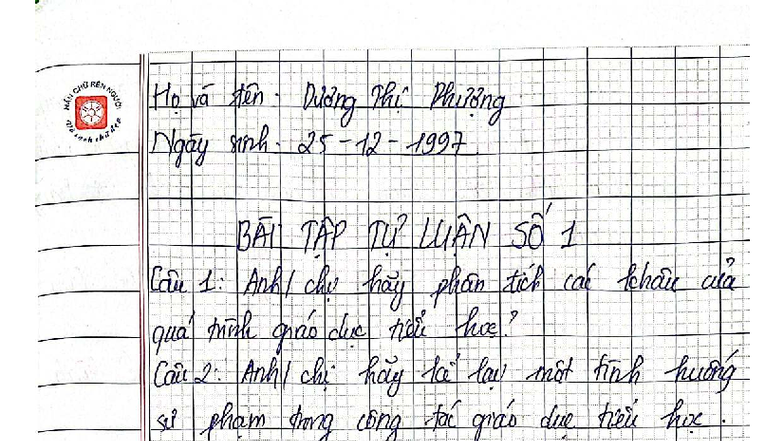 NẮN CHỮ RÈN NGƯỜI
Họ và tên: Dương Thị Phượng
Ngày sinh: 25-12-1997
BÀI TẬP TỰ LUẬN SỐ 1
Câu 1: Anh/chị hãy phân tích các khâu của
quá trình giáo dục tiểu học?
Câu 2: Anh/chị hãy kể lại một tình huống
sư phạm trong công tác giáo dục tiểu học.